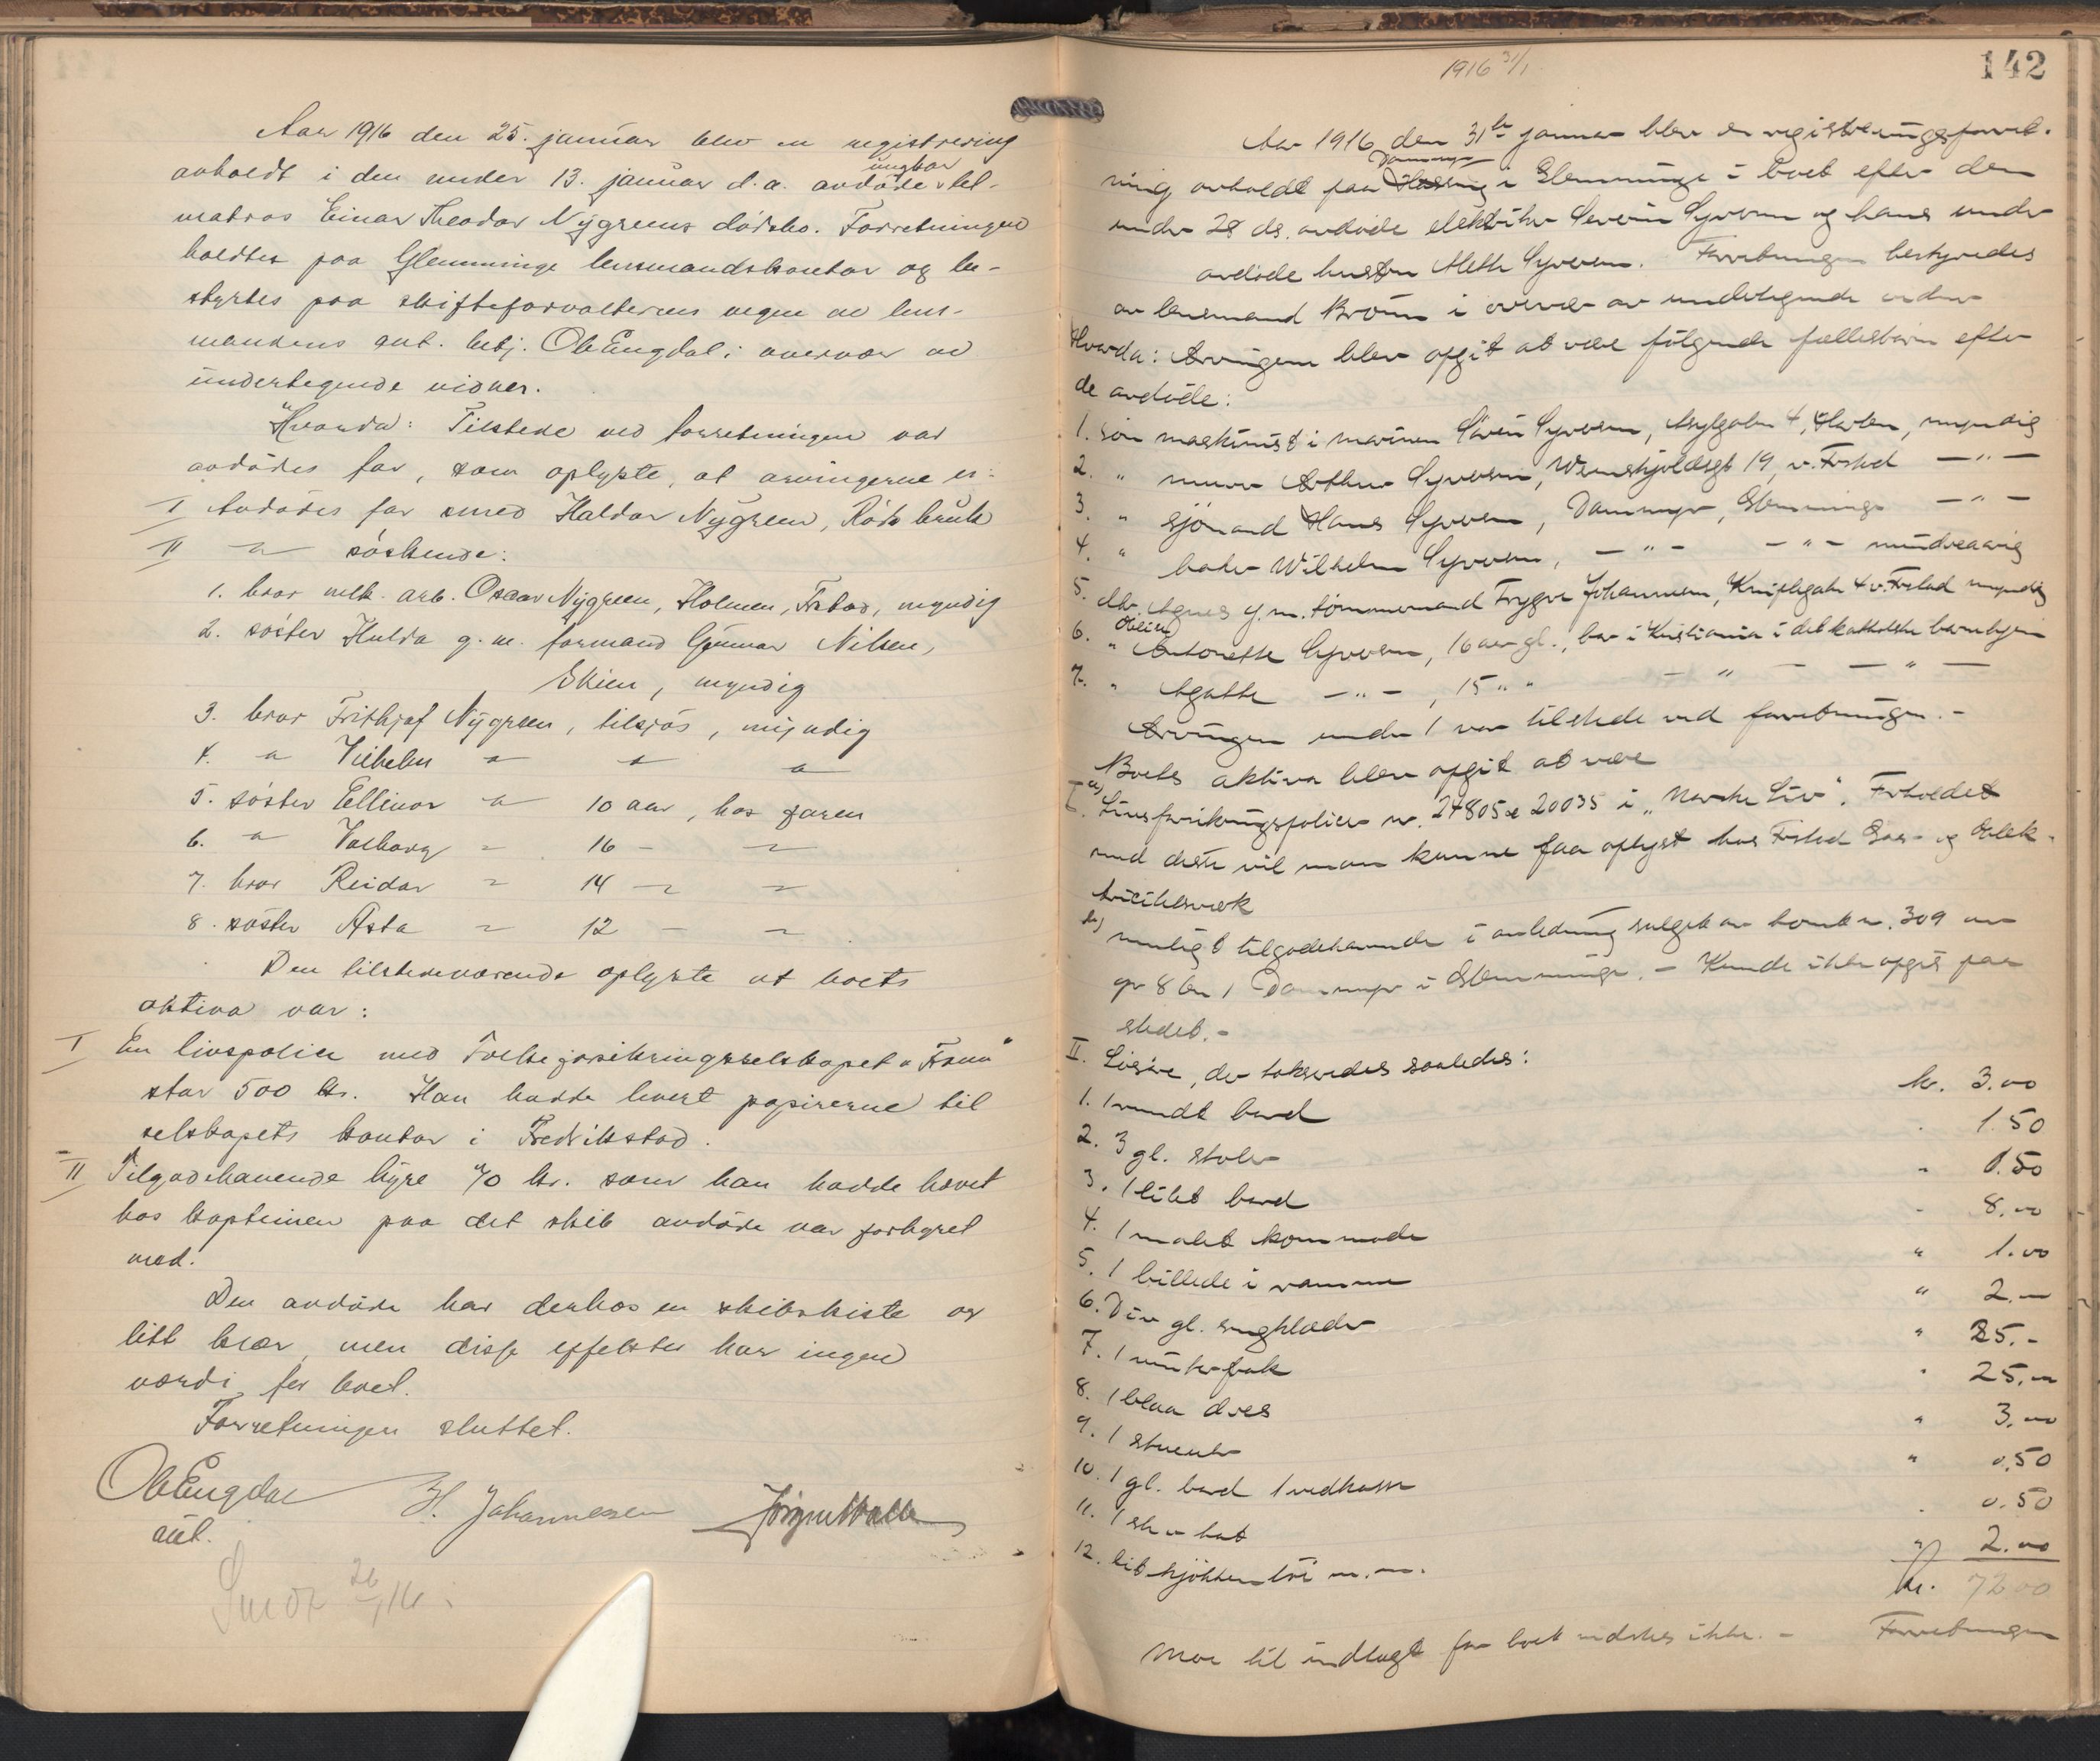 Aar 1916 den 25. januar blev en registrering
avholdt i den under 13. januar d.a. avdöde ungkar let-
matros Einar Theodor Nygreens dödsbo. Forretningen
holdtes paa Glemminge lensmandskontor og be-
styrtes paa skifteforvalterens vegne av lens-
mandens aut. betj. Ole Engdal i overvær av
undertegnede vidner.
Hvorda: Tilstede ved forretningen var
avdödes far, som oplyste, at arvingerne er:
I Avdödes far smed Haldor Nygreen, Röds bruk
II " söskende:
1. bror velk. arb. Oscar Nygreen, Holmen, Frstad, myndig
2. söster Hulda g.m. formand Gunnar Nilsen,
Skien, myndig
3. bror Frithjof Nygreen, tilsjös, myndig
4. " Vilhelm " " "
5. söster Ellinor " 10 aar, hos faren
6. " Valborg " 16 - "
7. bror Reidar " 14 " "
8. söster Asta " 12 - "
Den tilstedeværende oplyste at boets
aktiva var:
I En livspolice med Folkeforsikringsselskapet "Fram"
stor 500 kr. Han hadde levert papirerne til
selskapets kontor i Fredrikstad.
II Tilgodehavende hyre 40 kr. som han hadde hævet
hos kapteinen paa det skib avdöde var forhyret
med.
Den avdöde har derhos en skibskiste og
litt klær, men disse effekter har ingen
værdi for boet.
Forretningen sluttet.
Ole Engdal H. Johannesen Jörgen
aut.
26/1 16.
142
1916 31/1
Aar 1916 den 31te januar blev en registreringsforret-
ning avholdt paa Dammyr i Glemminge i boet efter den
under 28 ds. avdöde elektriker Severin Syversen og hans under
avdöde hustru Mette Syversen. Forretningen bestyredes
av lensmand Bröun i overvær av undertegnede vidner
Hvorda: Arvingerne blev opgit at være fölgende fællesbarn efter
de avdöde:
1. sön maskinist i marinen Sören Syversen, Asylgaten 4, Horten, myndig
2. " murer Arthur Syversen, Wernskjoldsgt 19, v. Frstad - " -
3. " sjömand Hans Syversen, Dammyr, Glemminge - " -
4. " baker Wilhelm Syversen, - " - - " - mindreaarig
5. dtr. Agnes g.m. tömmermand Trygve Johannesen, Kniplegate 4 v. Frstad myndig
6. " Antonette Syversen, 16 aar gl., bor i Kristiania i det katholske barnehjem
7. " Agathe - " -, 15 " " - " - - " -
Arvingen under 1 var tilstede ved forretningen. -
Boets aktiva blev opgit at være
I. a) Livsforsikringspolicer nr. 24805 & 20035 i "Norske Liv". Forholdet
med disse vil man kunne faa oplyst hos Frstad Gas- og Elek-
tricitetsverk
b) muligt tilgodehavende i anledning salget av tomt nr. 309 av
gr 8 bn 1 Dammyr i Glemminge. - Kunde ikke opgis paa
stedet. -
II. Lösöre, der takseredes saaledes:
1. 1 rundt bord kr. 3.00
2. 3 gl. stoler " 1.50
3. 1 litet bord " 0.50
4. 1 malet kommode " 8.00
5. 1 billede i ramme " 1.00
6. Div gl. sengklæder " 2.-
7. 1 vinterfrak " 25.-
8. 1 blaa dres " 25.-
9. 1 stueur " 3.00
10. 1 gl. bord 1 vedkasse " 0.50
11. 1 hat " 0.50
12. lit kjökkentöi m.m. " 2.00
kr. 72 00
Mere til indtægt for boet vidstes ikke. - Forretningen